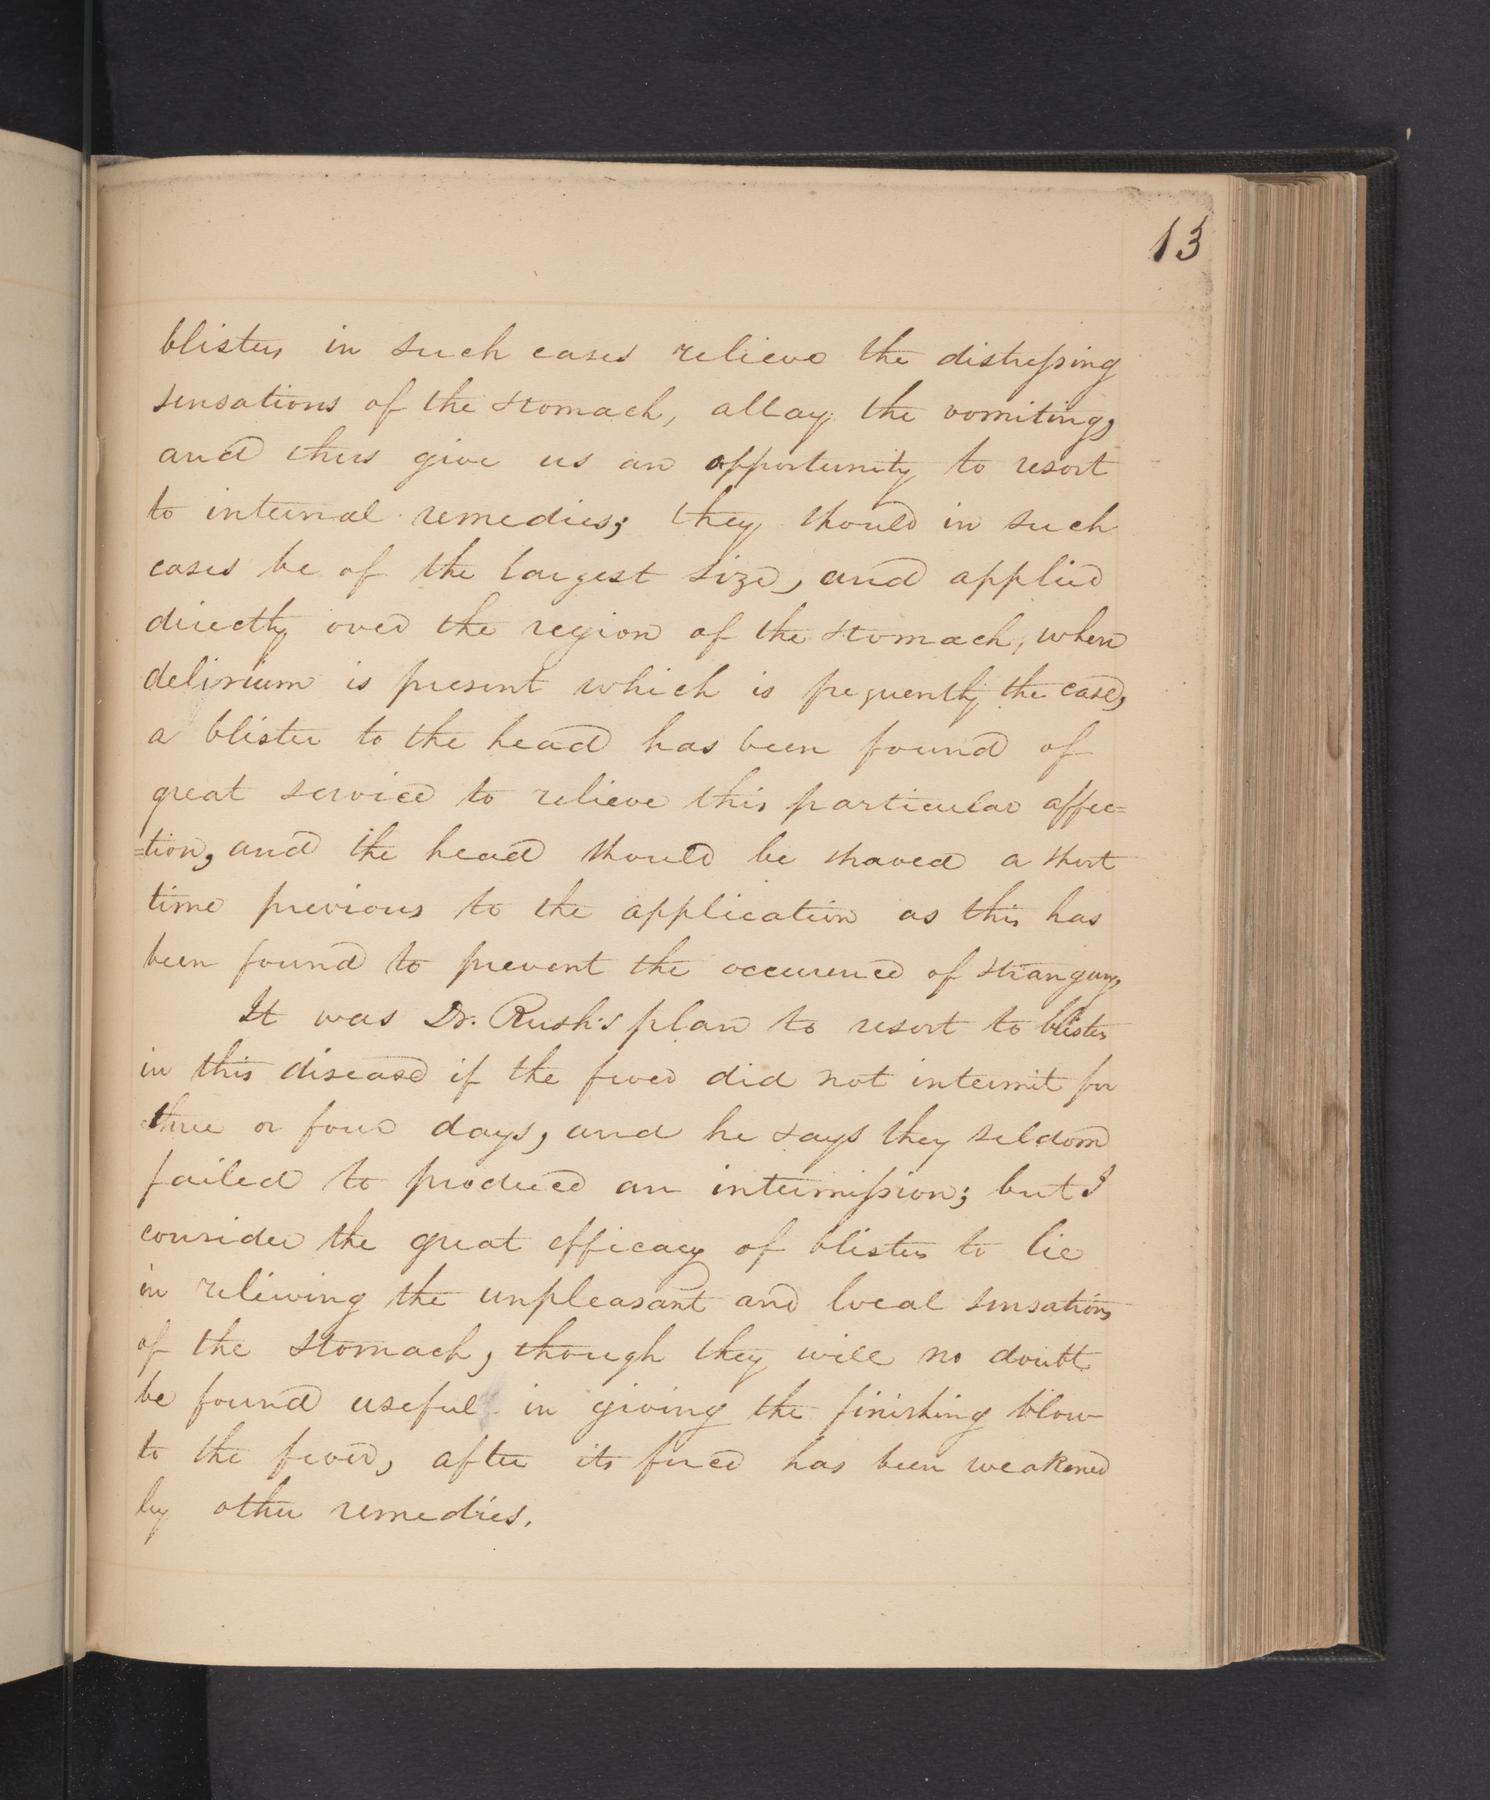 13
blisters in such cases relieve the distressing
sensations of the stomach, allay the vomiting,
and thus give us an opportunity to resort
to internal remedies; they should in such
cases be of the largest size, and applied
directly over the region of the stomach, when
delirium is present which is frequently the case,
a blister to the head has been found of
great service to relieve this particular affec=
=tion, and the head should be shaved a short
time previous to the application as this has
been found to prevent the occurence of strangury,
It was Dr. Rush's plan to resort to blisters
in this disease if the fever did not intermit for
three or four days, and he says they seldom
failed to produce an intermission; but I
consider the great efficacy of blisters to lie
in relieving the unpleasant and local sensations
of the stomach, though they will no doubt
be found useful in giving the finishing blow
to the fever, after its force has been weakened
by other remedies.